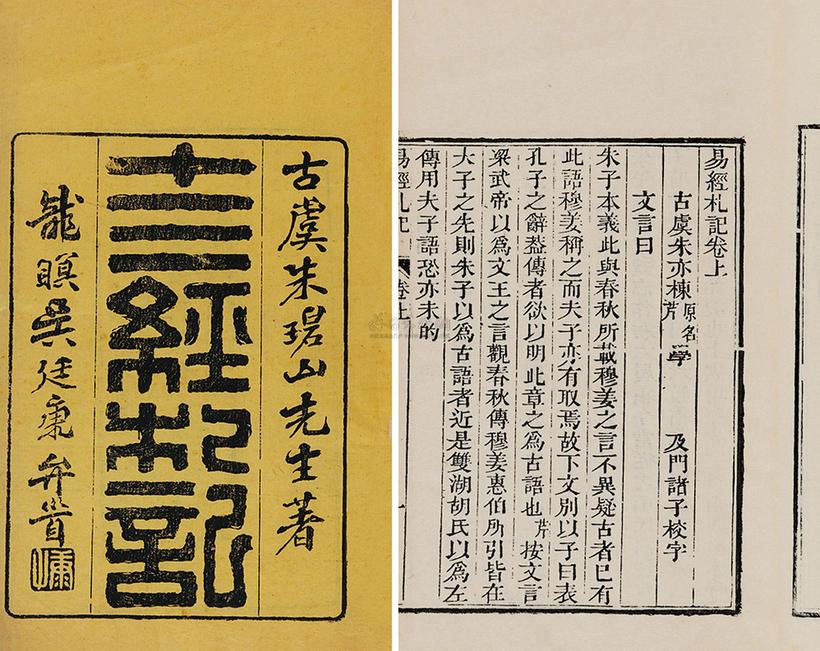 古虞朱碧山先生著
十三經札記
龍瞑吳廷康弁首
易經札記卷上
古虞朱亦棟原名芹學　及門諸子校字
文言曰
朱子本義此與春秋所載穆姜之言不異疑古者已有
此語穆姜稱之而夫子亦有取焉故下文別以子曰表
孔子之辭葢傳者欲以明此章之爲古語也芹按文言
梁武帝以爲文王之言觀春秋傳穆姜惠伯所引皆在
大子之先則朱子以爲古語者近是雙湖胡氏以爲左
傳用夫子語恐亦未的
易經札記 卷上